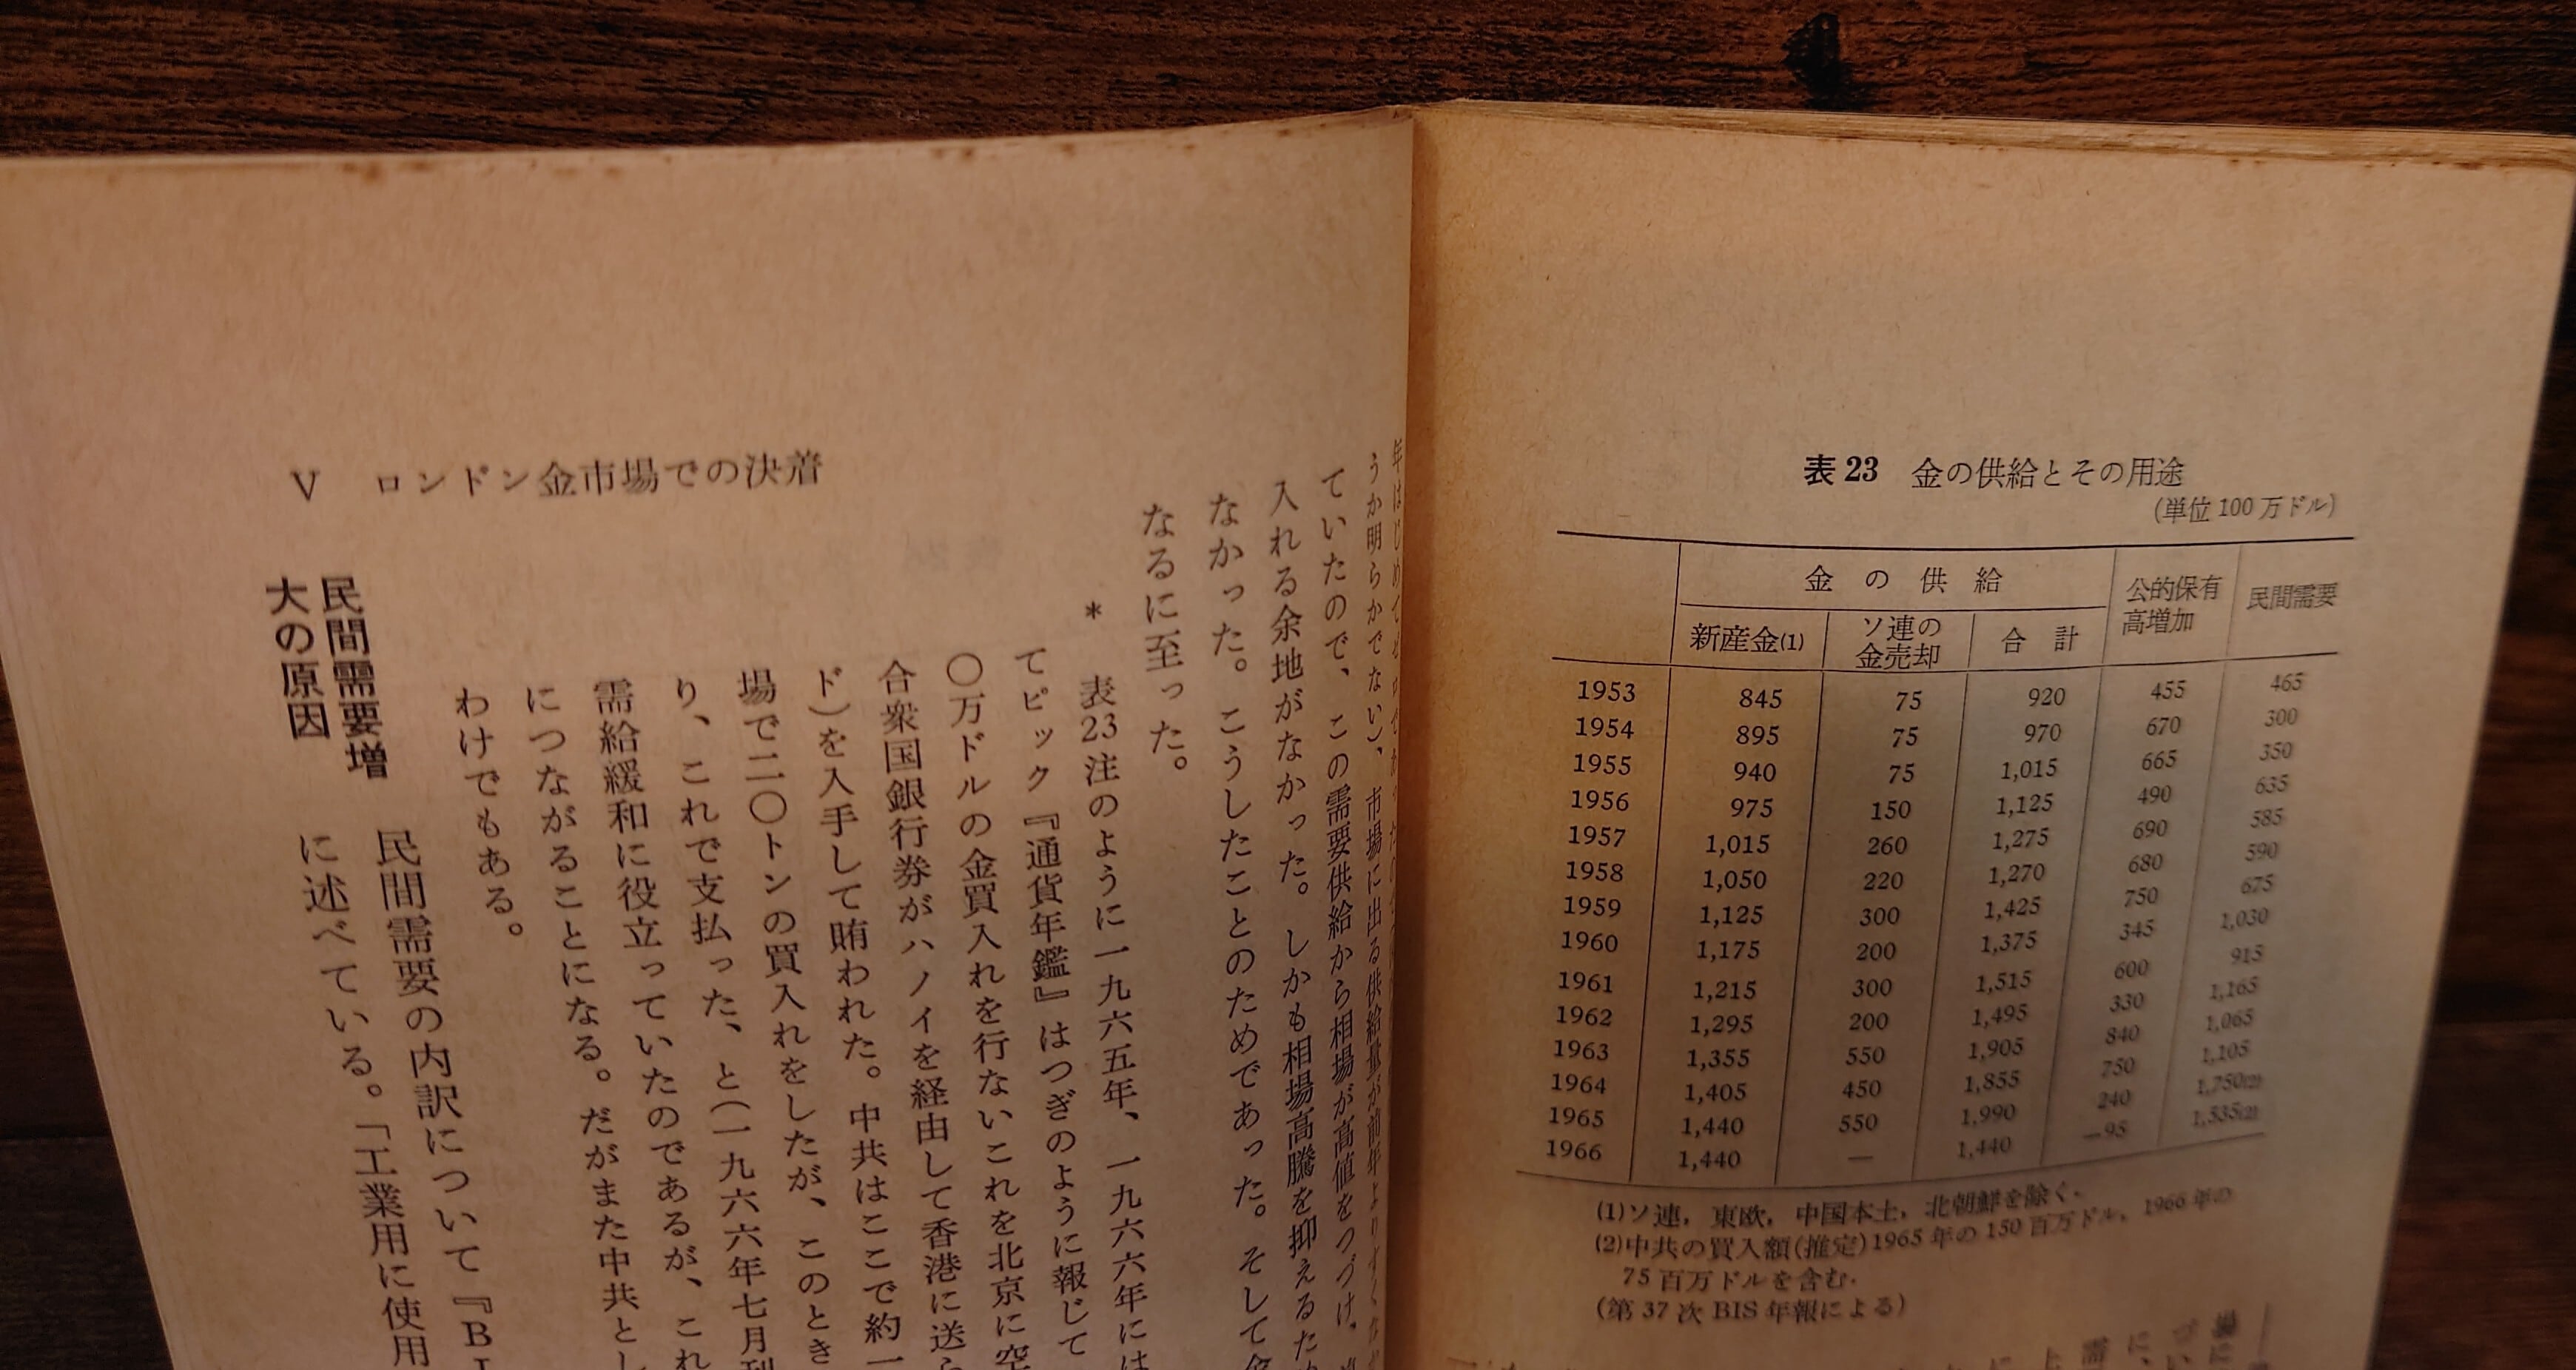 表23 金の供給とその用途
(単位100万ドル)
金の供給 公的保有高増加 民間需要
新産金(1) ソ連の金売却 合計
1953 845 75 920 455 465
1954 895 75 970 670 300
1955 940 75 1,015 665 350
1956 975 150 1,125 490 635
1957 1,015 260 1,275 690 585
1958 1,050 220 1,270 680 590
1959 1,125 300 1,425 750 675
1960 1,175 200 1,375 345 1,030
1961 1,215 300 1,515 600 915
1962 1,295 200 1,495 330 1,165
1963 1,355 550 1,905 840 1,065
1964 1,405 450 1,855 750 1,105
1965 1,440 550 1,990 240 1,750(2)
1966 1,440 — 1,440 —95 1,535(2)
(1)ソ連，東欧，中国本土，北朝鮮を除く．
(2)中共の買入額(推定)1965年の150百万ドル，1966年の
75百万ドルを含む．
(第37次BIS年報による)
V ロンドン金市場での決着
うか明らかでない)、市場に出る供給量が前年より
ていたので、この需要供給から相場が高値をつづけ、
入れる余地がなかった。しかも相場高騰を抑えるた
なかった。こうしたことのためであった。そして
なるに至った。
* 表23注のように一九六五年、一九六六年には
てピック『通貨年鑑』はつぎのように報じて
〇万ドルの金買入れを行ないこれを北京に空
合衆国銀行券がハノイを経由して香港に送ら
ド)を入手して賄われた。中共はここで約一
場で二〇トンの買入れをしたが、このとき
り、これで支払った、と(一九六六年七月刊
需給緩和に役立っていたのであるが、これ
につながることになる。だがまた中共とし
わけでもある。
民間需要増
大の原因
民間需要の内訳について『BI
に述べている。「工業用に使用